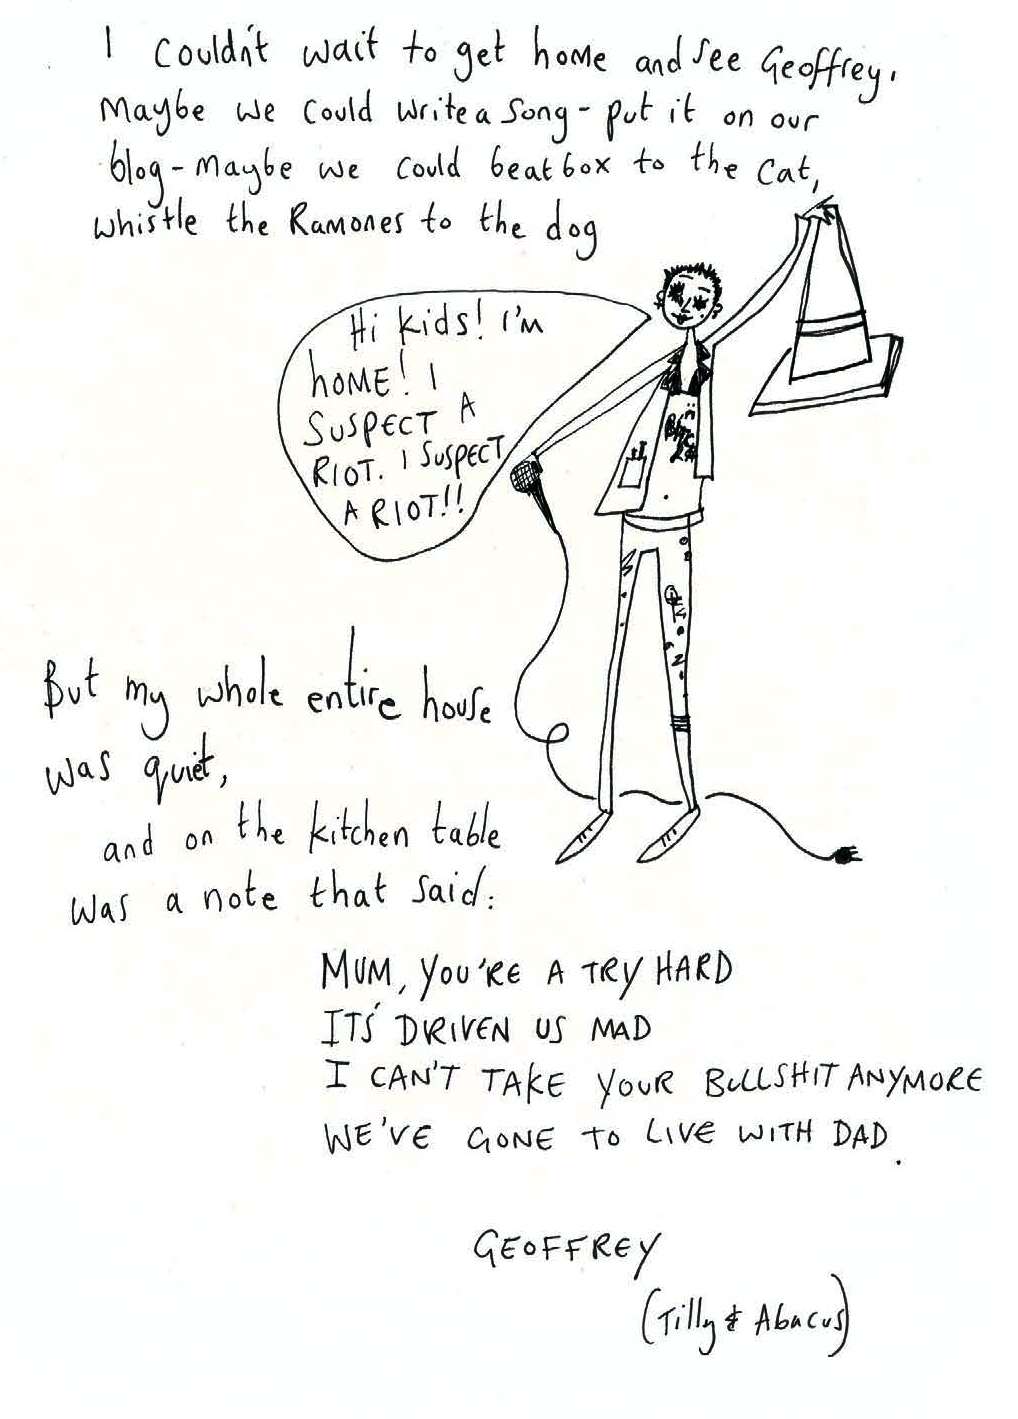 I couldn't wait to get home and see Geoffrey.
Maybe we could write a song - put it on our
blog - maybe we could beat box to the cat,
whistle the Ramones to the dog
Hi kids! I'm
HOME! I
SUSPECT A
RIOT. I SUSPECT
A RIOT!!
But my whole entire house
was quiet,
and on the kitchen table
was a note that said:
MUM, YOU'RE A TRY HARD
ITS' DRIVEN US MAD
I CAN'T TAKE YOUR BULLSHIT ANYMORE
WE'VE GONE TO LIVE WITH DAD.
GEOFFREY
(Tilly & Abacus)